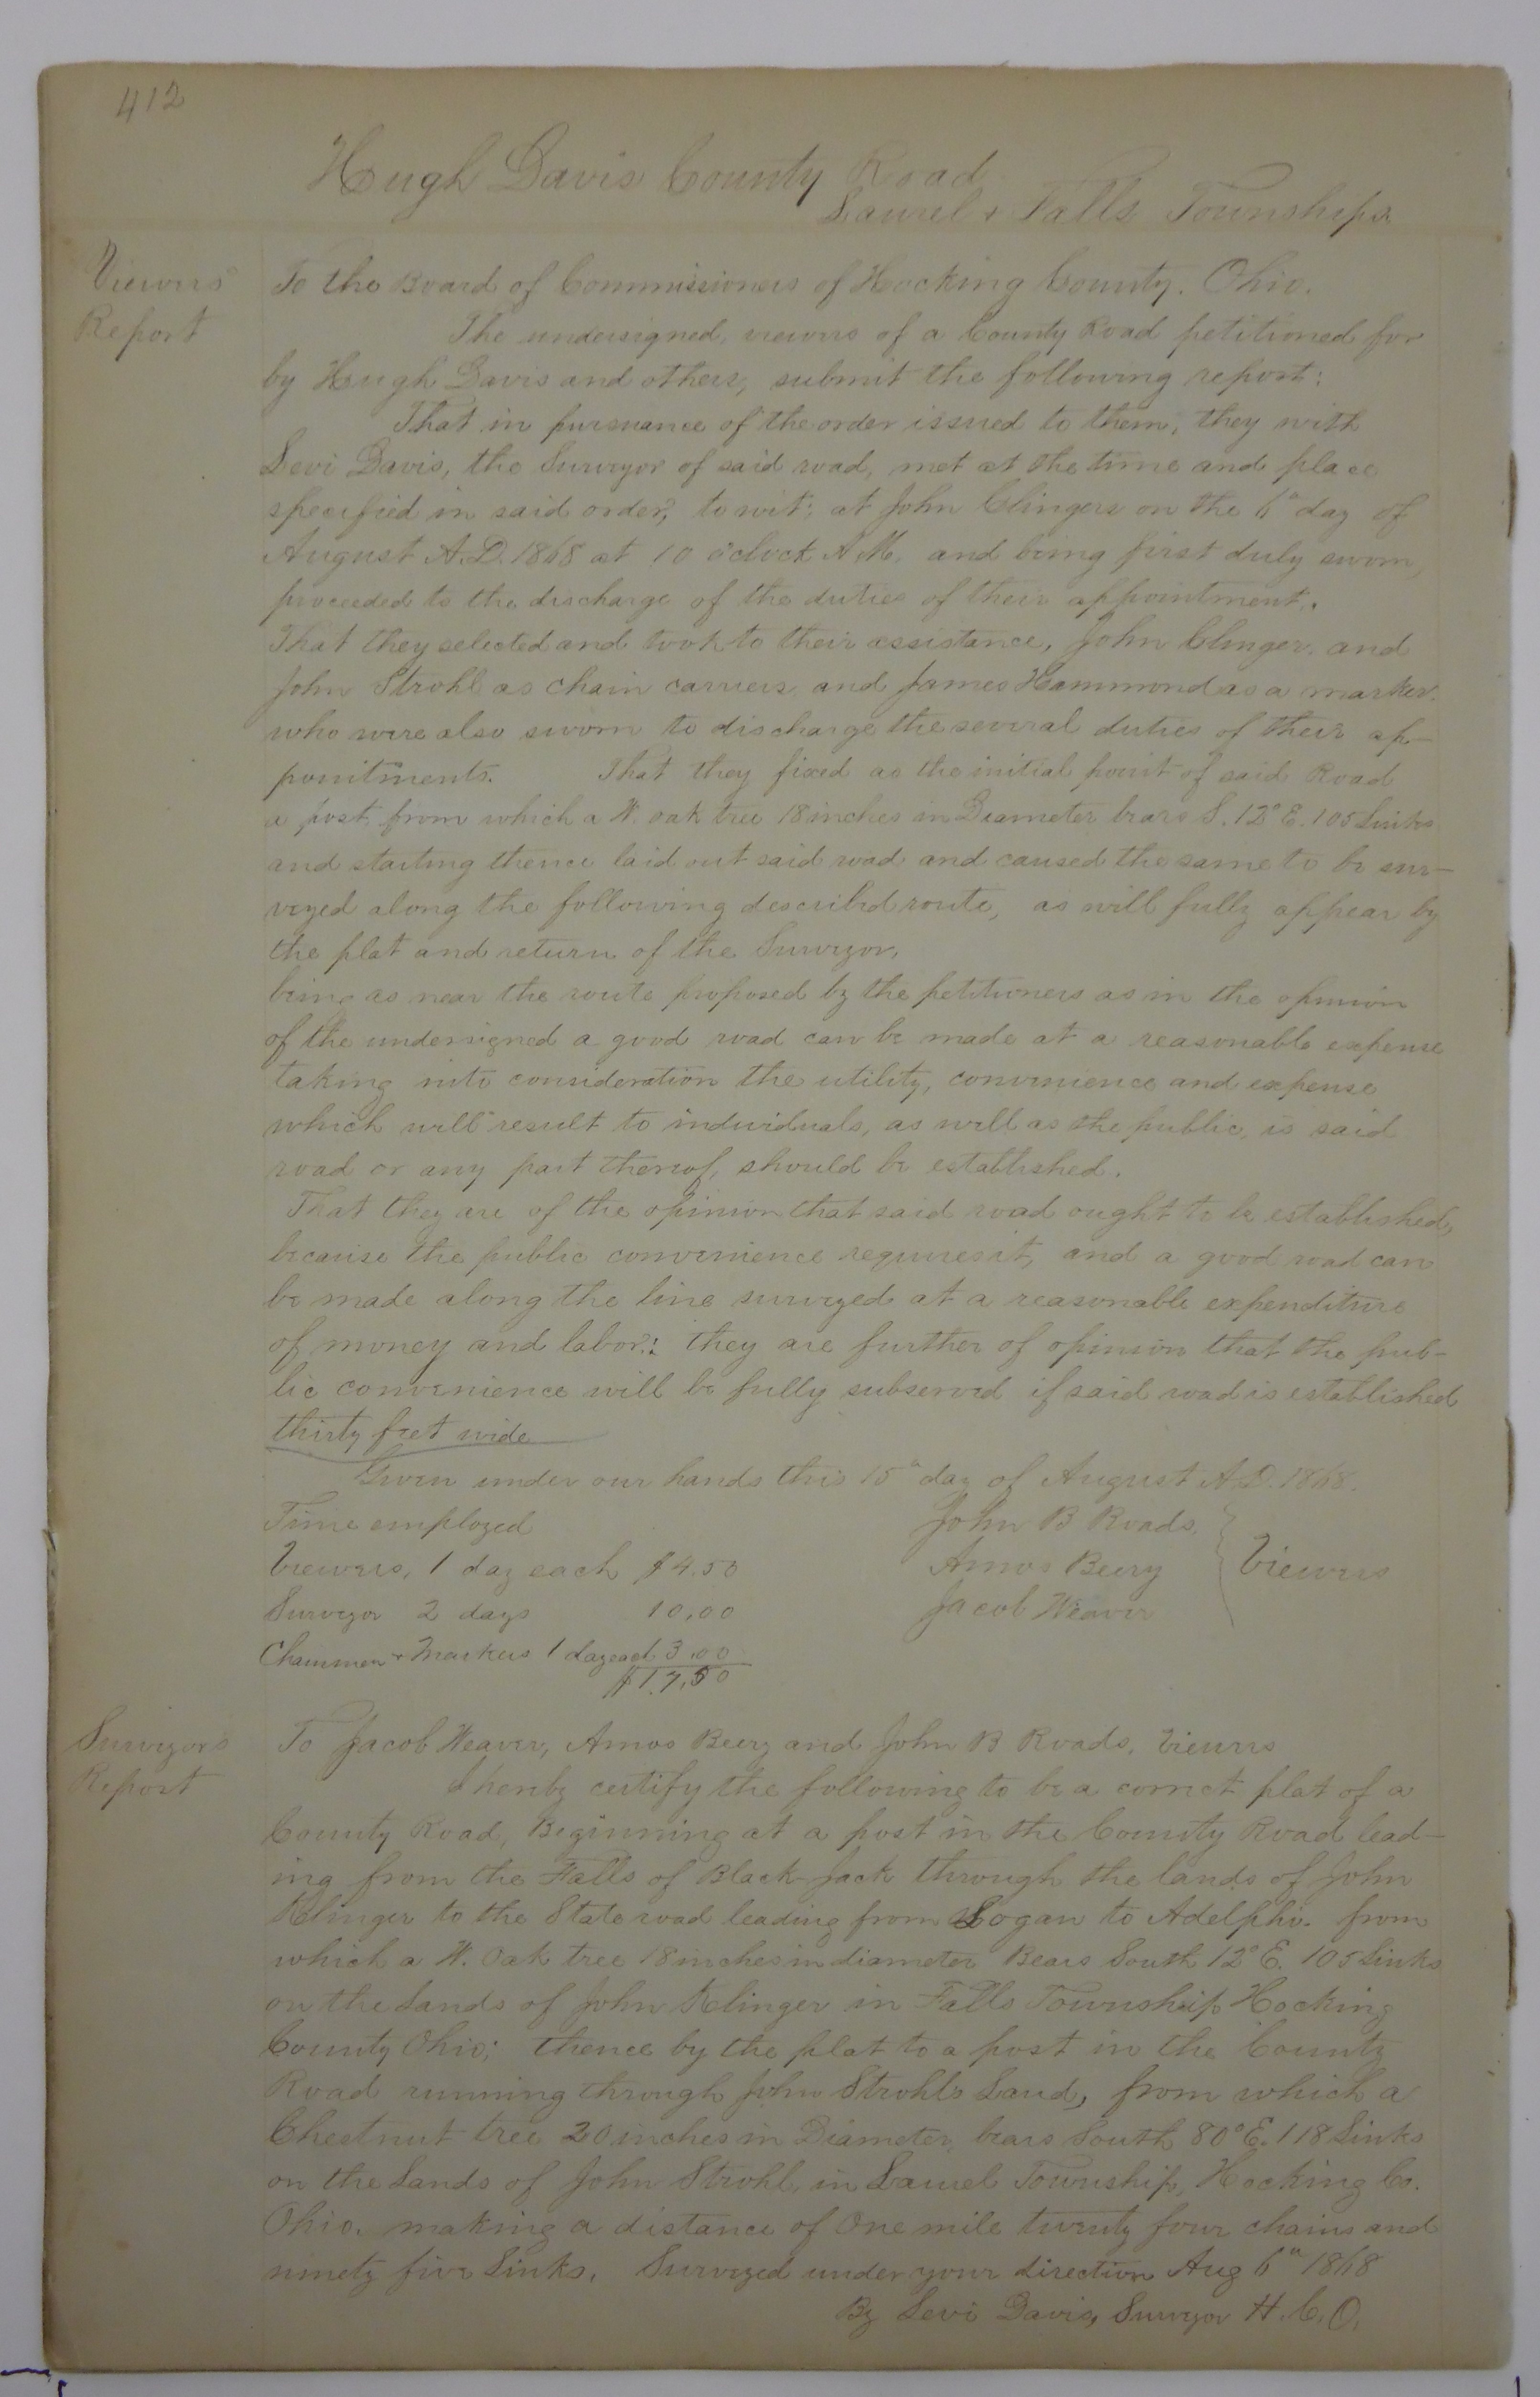 412
Hugh Davis County Road
Laurel & Falls Townships
Viewers
Report
To the Board of Commissioners of Hocking County. Ohio.
The undersigned, viewers of a County Road petitioned for
by Hugh Davis and others, submit the following report:
That in pursuance of the order issued to them, they with
Levi Davis, the Surveyor of said road, met at the time and place
specified in said order, to wit; at John Clingers on the 6" day of
August A.D. 1868 at 10 o'clock A.M. and being first duly sworn,
proceeded to the discharge of the duties of their appointment.
That they selected and took to their assistance, John Clinger, and
John Strohl as chain carriers, and James Hammond as a marker.
who were also sworn to discharge the several duties of their ap-
pointments. That they fixed as the initial point of said Road
a post from which a W. oak tree 18 inches in Diameter bears S. 12° E. 105 Links
and starting thence laid out said road and caused the same to be sur-
veyed along the following described route, as will fully appear by
the plat and return of the Surveyor,
being as near the route proposed by the petitioners as in the opinion
of the undersigned a good road can be made at a reasonable expense
taking into consideration the utility, convenience and expense
which will result to individuals, as well as the public, is said
road or any part thereof, should be established.
That they are of the opinion that said road ought to be established,
because the public convenience requires it, and a good road can
be made along the line surveyed at a reasonable expenditure
of money and labor: they are further of opinion that the pub-
lic convenience will be fully subserved if said road is established
thirty feet wide
Given under our hands this 15" day of August A.D. 1868.
Time employed
John B Roads
Viewers, 1 day each $4.50
Amos Beery
Viewers
Surveyor 2 days 10,00
Jacob Weaver
Chainmen & Markers 1 day each 3.00
$17,50
Surveyors
Report
To Jacob Weaver, Amos Beery and John B Roads, Viewers
I hereby certify the following to be a correct plat of a
County Road, Beginning at a post in the County Road lead-
ing from the Falls of Black Jack through the lands of John
Klinger to the State road leading from Logan to Adelphi. from
which a W. Oak tree 18 inches in diameter Bears South 12° E. 105 Links
on the Lands of John Klinger in Falls Township Hocking
County Ohio; thence by the plat to a post in the County
Road running through John Strohls Land, from which a
Chestnut tree 20 inches in Diameter bears South 80° E. 118 Links
on the Lands of John Strohl, in Laurel Township, Hocking Co.
Ohio. making a distance of One mile twenty four chains and
ninety five Links. Surveyed under your direction Aug 6" 1868
By Levi Davis, Surveyor H.C.O.